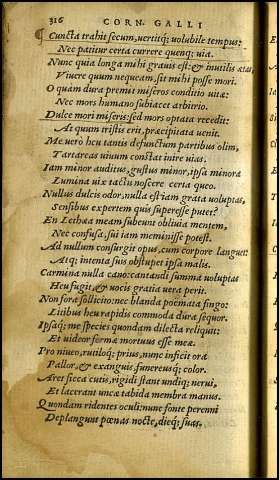 316 CORN. GALLI
¶ Cuncta trahit secum, uertitq; uolubile tempus:
Nec patitur certa currere quenq; uia.
Nunc quia longa mihi grauis est: & inutilis ætas,
Viuere quum nequeam, sit mihi posse mori.
O quàm dura premit miseros conditio uitæ:
Nec mors humano subiacet arbitrio.
Dulce mori miseris: sed mors optata recedit:
At quum tristis erit, præcipitata uenit.
Me uerò heu tantis defunctum partibus olim,
Tartareas uiuum constat inire uias.
Iam minor auditus, gustus minor, ipsa minora
Lumina uix tactu noscere certa queo.
Nullus dulcis odor, nulla est iam grata uoluptas,
Sensibus expertem quis superesse putet?
En Lethæa meam subeunt obliuia mentem,
Nec confusa, sui iam meminisse potest.
Ad nullum consurgit opus, cum corpore languet:
Atq; intenta suis obstupet ipsa malis.
Carmina nulla cano: cantandi summa uoluptas
Heu fugit, & uocis gratia uera perit.
Non fora sollicito: nec blanda poëmata fingo:
Litibus heu rapidis commoda dura sequor.
Ipsaq; me species quondam dilecta reliquit:
Et uideor formæ mortuus esse meæ.
Pro niueo, rutiloq; prius, nunc inficit ora
Pallor, & exanguis, funereusq; color.
Aret sicca cutis, rigidi stant undiq; nerui,
Et lacerant uncæ tabida membra manus.
Quondam ridentes oculi: nunc fonte perenni
Deplangunt pœnas nocte, dieq; suas.